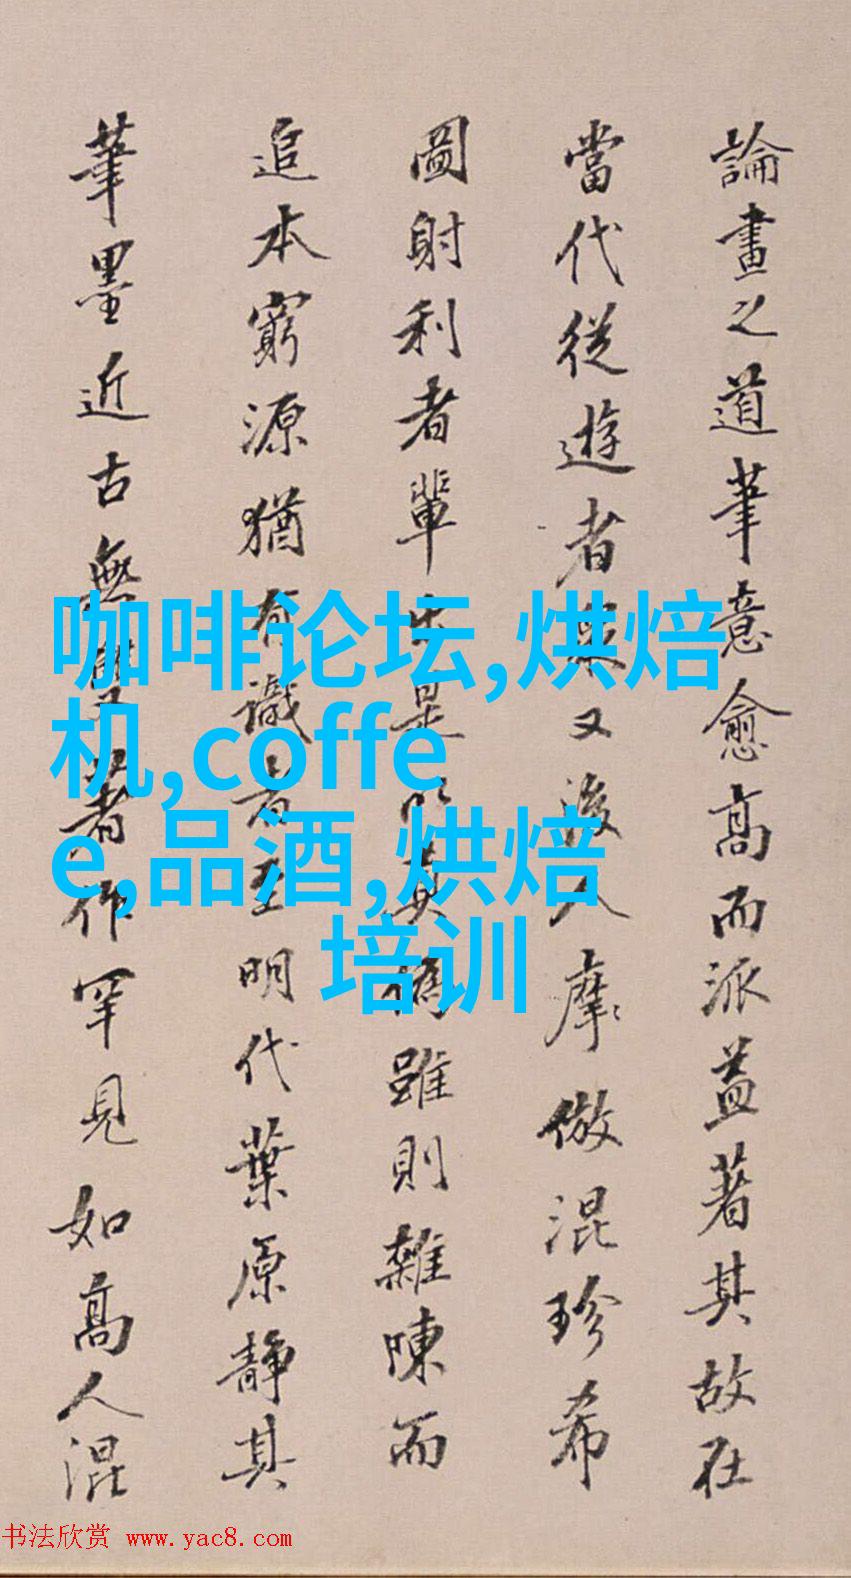 論畫之道筆意愈高而派益著其故在
當代從遊者眾又後人摩倣混珍希
圖射利者輩出是以其偽雖則雜陳而
追本窮源猶有識者至明代葉原靜其
筆墨近古無雙著作罕見如高人混
咖啡论坛,烘焙
机,coffe
e,品酒,烘焙
培训
书法欣赏 www.yac8.com